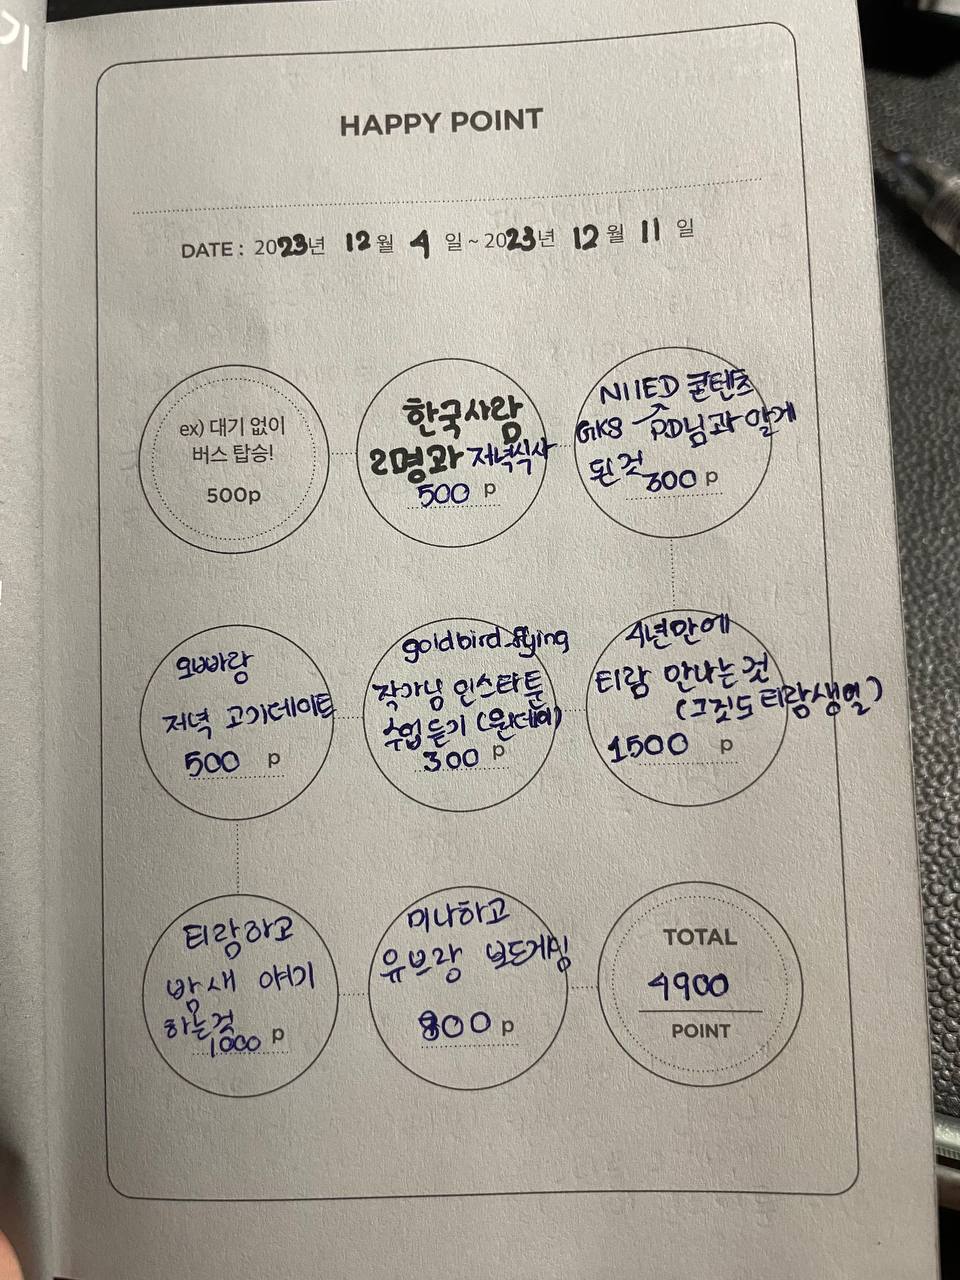 HAPPY POINT
DATE : 2023년 12월 4일 ~ 2023년 12월 11일
ex) 대기 없이
버스 탑승!
500p
한국사람
2명과 저녁식사
500 p
NIIED 콘텐츠
GKS PD님과 알게
된 것
300 p
4년만에
티람 만나는 것
(그것도 티람생일)
1500 p
goldbird_flying
작가님 인스타툰
수업 듣기 (원데이)
300 p
오빠랑
저녁 고기데이트
500 p
티람하고
밤새 야기
하는것
1000 p
미나하고
유브랑 보드게임
800 p
TOTAL
4900
POINT